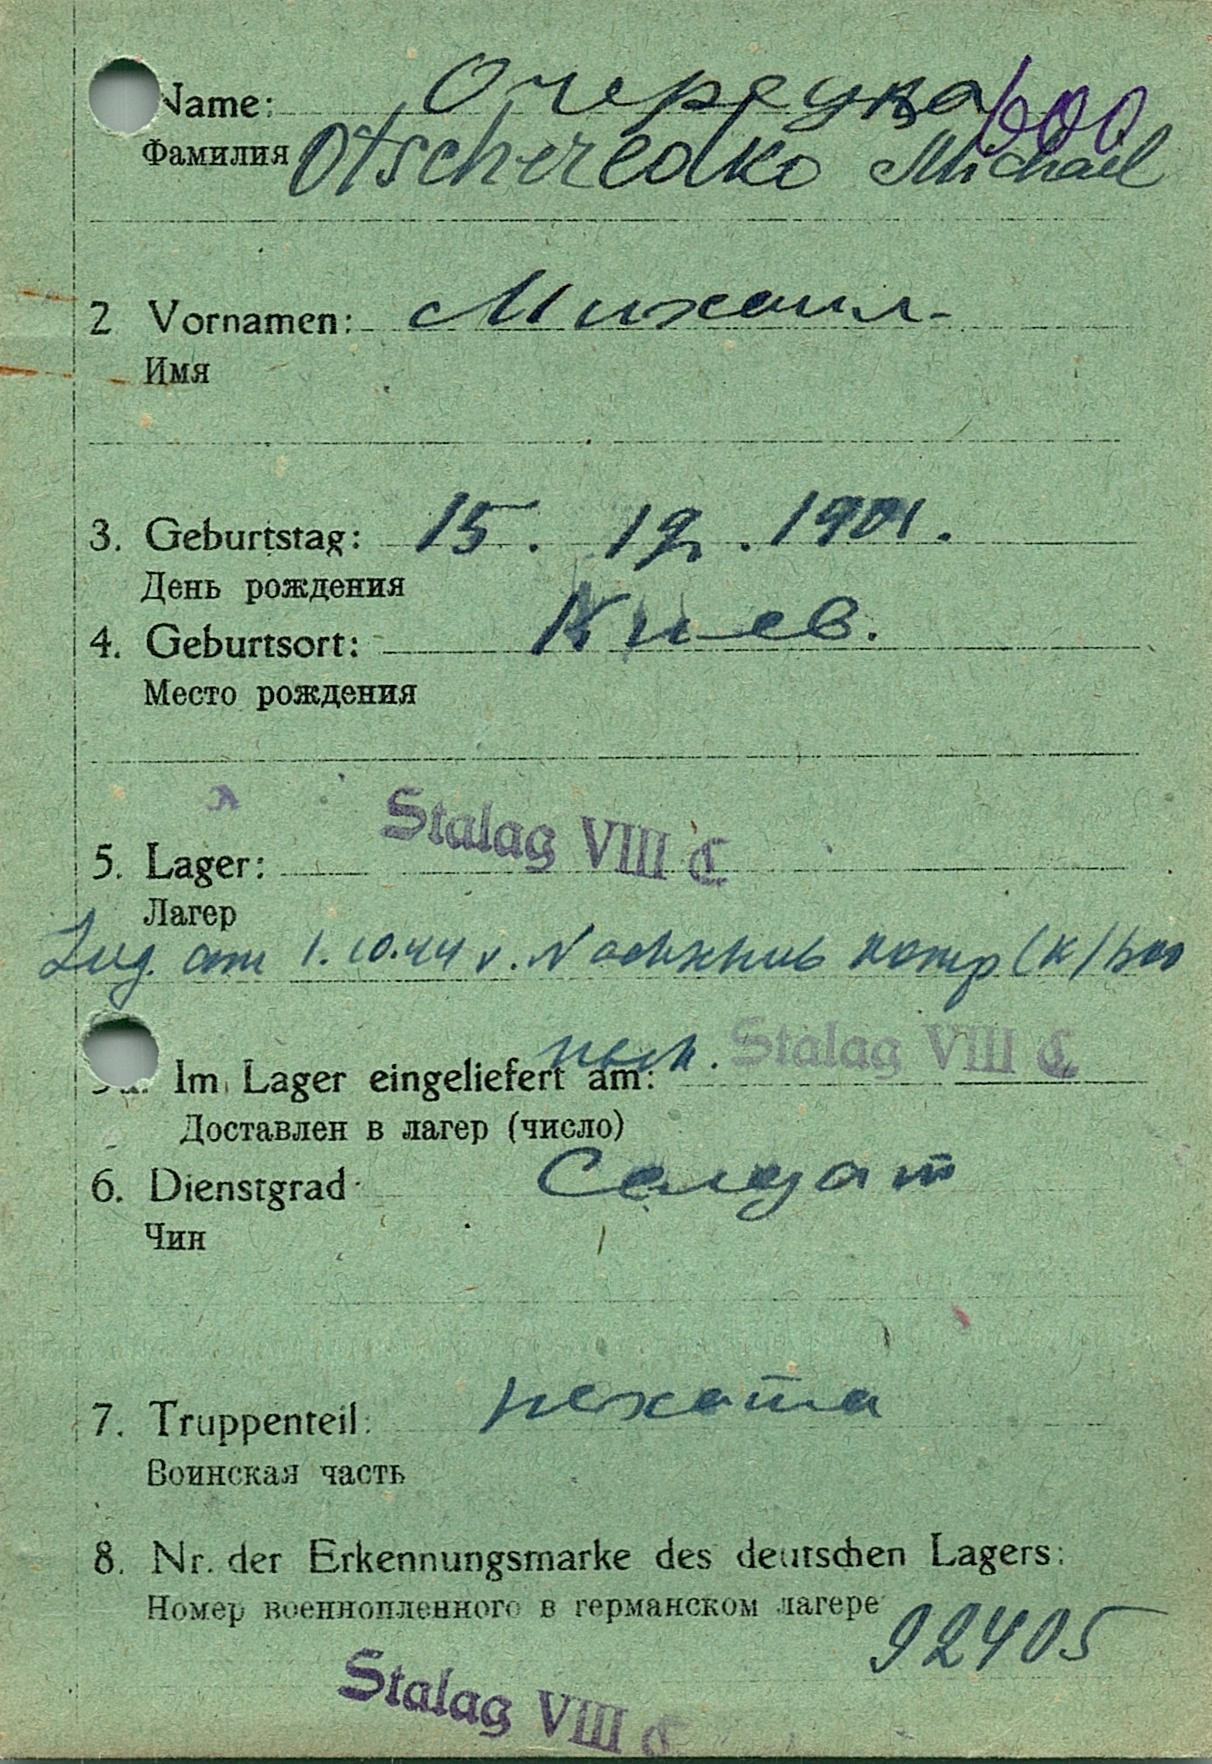 Name: Очередка 600
Фамилия Otscheredko Michael
2 Vornamen: Михаил
Имя
3. Geburtstag: 15. 12. 1901.
День рождения
4. Geburtsort: Киев.
Место рождения
Stalag VIII C
5. Lager:
Лагер
Zug. am 1.10.44 v. Nachschub Komp (K) 600
Im Lager eingeliefert am: Stalag VIII C
Доставлен в лагер (число)
6. Dienstgrad Солдат
Чин
7. Truppenteil: пехота
Воинская часть
8. Nr. der Erkennungsmarke des deutschen Lagers:
Номер военнопленного в германском лагере
92405
Stalag VIII C